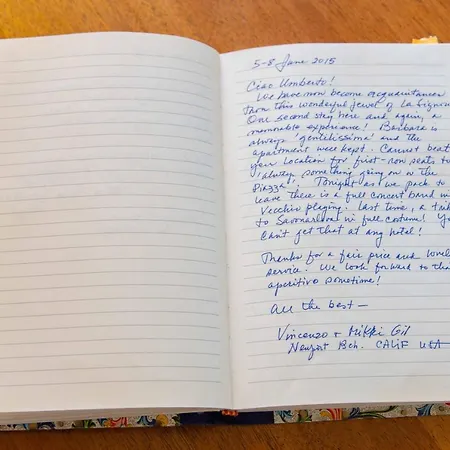 5-8 June 2015
Ciao Umberto!
We have now become acquaintances
from this wonderful jewel of La Signor
Our second stay here and again, a
memorable experience! Barbara is
always "gentilissima" and the
apartment well kept. Cannot beat
your location for first-row seats to
"always something going on in the
Piazza". Tonight as we pack to
leave there is a full concert band in
Vecchio playing. Last time, a trib
to Savonarola in full costume! You
can't get that at any hotel!
Thanks for a fair price and lovel
service. We look forward to tha
aperitivo sometime!
All the best —
Vincenzo + Mikki Gil
Newport Bch. CALIF USA